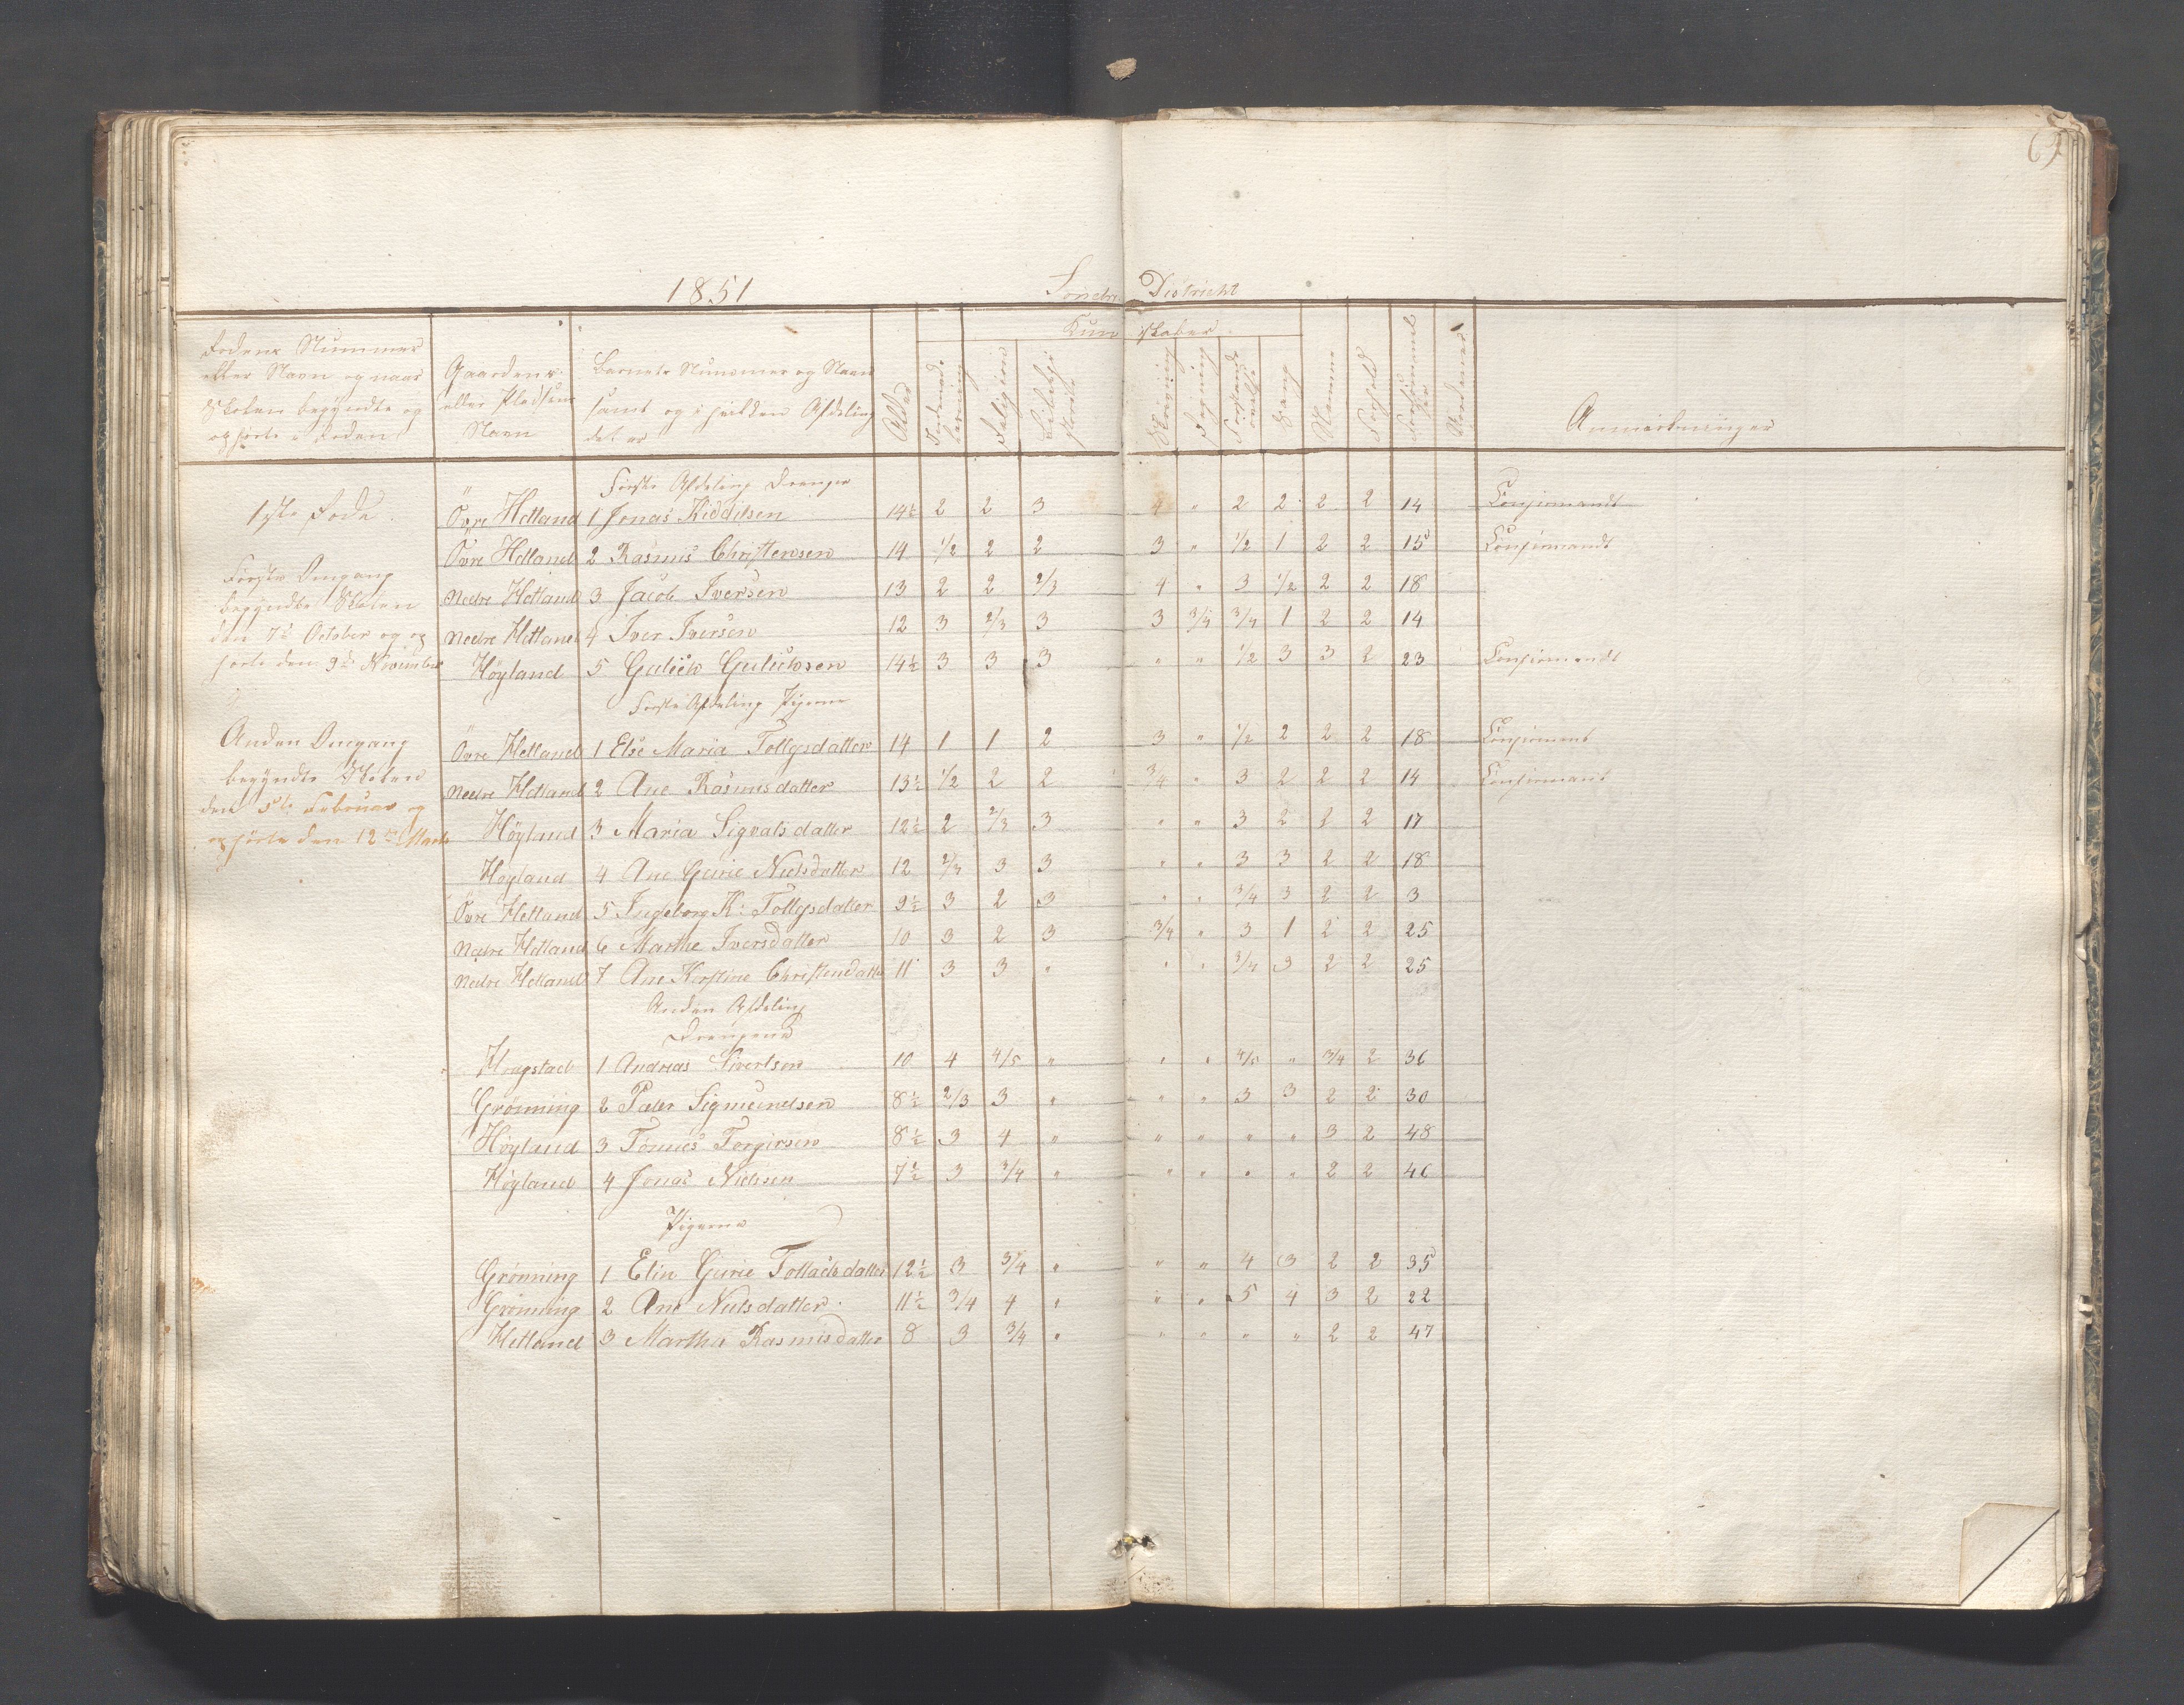 64
1851 Søndre District
Kundskaber
Rodens Nummer
eller Navn og naar
Skolen begyndte og
ophørte i Roden
Gaardens
eller Pladsens
Navn
Barnets Nummer og Navn
samt og i hvilken Afdeling
det er
Alder
Religion
Skrivning
Regning
Sang
Nemme
Forhold
Anmærkninger
Første Afdeling Drenge
1ste Rode
Øvre Hetland 1 Jonas Kiddilsen 14½ 2 2 3 4 " 2 2 2 2 14 Confirmandt
Øvre Hetland 2 Rasmus Christensen 14 1/2 2 2 3 " 1/2 1 2 2 15 Confirmandt
Første Omgang
Nedre Hetland 3 Jacob Iversen 13 2 2 2/3 4 " 3 1/2 2 2 18
begyndte Skolen
Nedre Hetland 4 Iver Iversen 12 3 2/3 3 3 3/4 3/4 1 2 2 14
den 7de October og op
hørte den 9de November
Høyland 5 Gulich Gulichsen 14½ 3 3 3 " " 1/2 3 3 2 23 Confirmandt
Første Afdeling Pigerne
Anden Omgang
Øvre Hetland 1 Else Maria Tollgsdatter 14 1 1 2 3 " 1/2 2 2 2 18 Confirmant
begyndte Skolen
Nedre Hetland 2 Ane Rasmusdatter 13½ 1/2 2 2 3/4 " 3 2 2 2 14 Confirmant
den 5te Februar og
ophørte den 12te Marts
Høyland 3 Maria Sigvalsdatter 12½ 2 2/3 3 " " 3 2 2 2 17
Høyland 4 Ane Gurie Nielsdatter 12 2/3 3 3 " " 3 3 2 2 18
Øvre Hetland 5 Ingeborg K: Tollgsdatter 9½ 3 2 3 " " 3/4 3 2 2 3
Nedre Hetland 6 Marthe Iversdatter 10 3 2 3 3/4 " 3 1 2 2 25
Nedre Hetland 7 Ane Kirstine Christendatter 11 3 3 " " " 3/4 3 2 2 25
Anden Afdeling
Drengene
Hogstad 1 Andreas Sivertsen 10 4 4/5 " " " 4/5 " 3/4 2 36
Grønning 2 Peder Sigmundsen 8½ 2/3 3 " " " 3 3 2 2 30
Høyland 3 Tønnes Torgirsen 8½ 3 4 " " " " " 3 2 48
Høyland 4 Jonas Nielsen 7½ 3 3/4 " " " " " 2 2 46
Pigerne
Grønning 1 Elin Gurie Tollachsdatter 12½ 3 3/4 " " " 4 3 2 2 35
Grønning 2 Ane Nielsdatter 11½ 3/4 4 " " " 5 4 3 2 22
Hetland 3 Martha Rasmusdatter 8 3 3/4 " " " " " 2 2 47